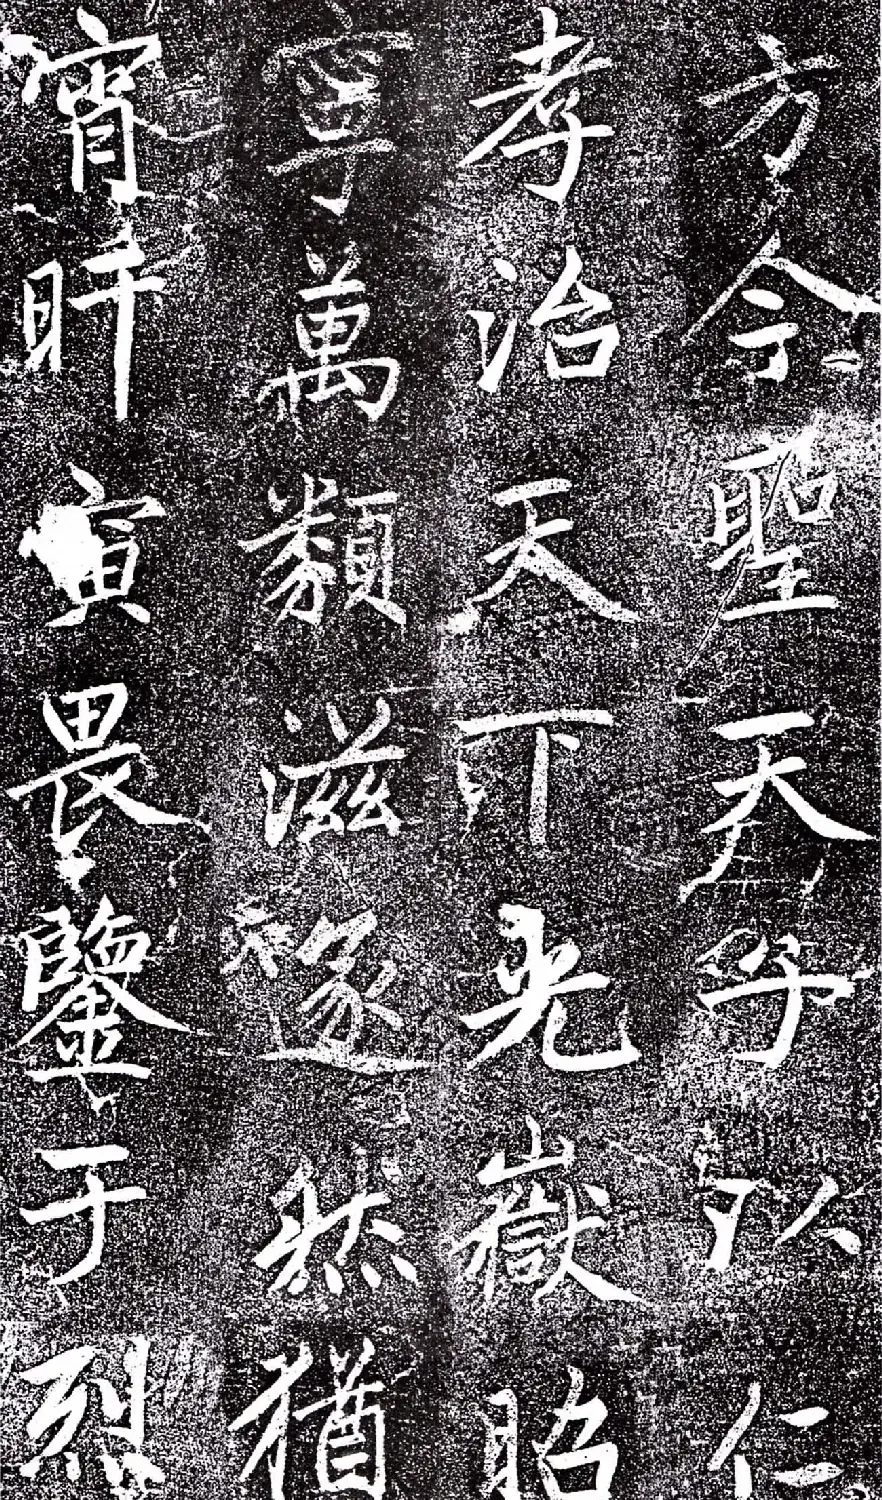 方今聖天子以仁
孝治天下光嶽昭
寧萬類滋遂然猶
宵旰寅畏鑒于烈